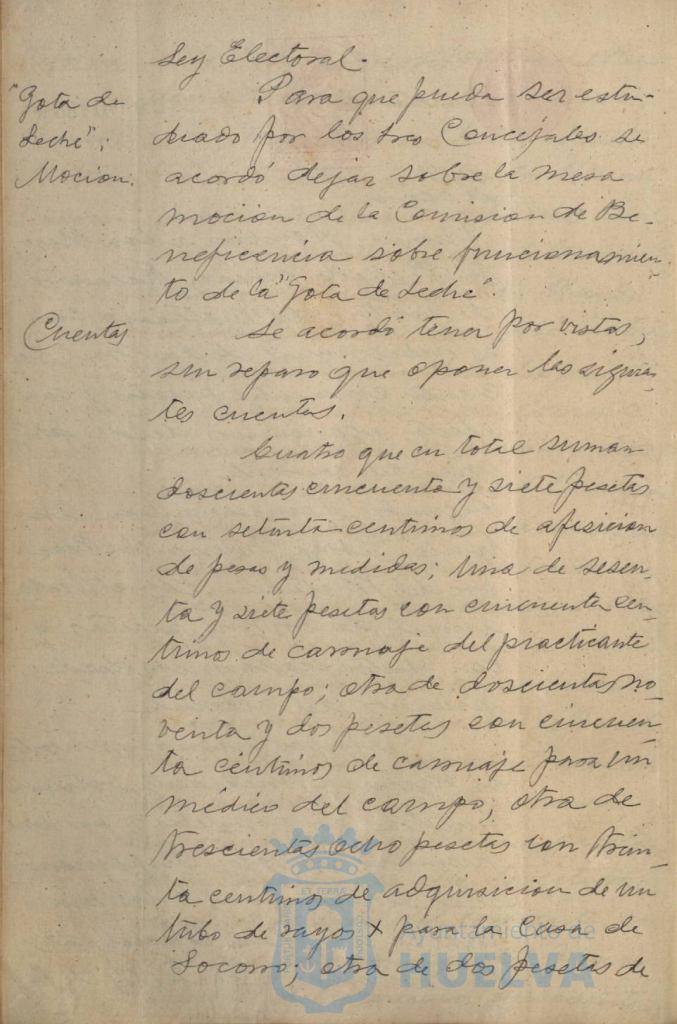 Ley Electoral.
"Gota de
Leche";
Mocion.
Para que pueda ser estu-
diado por los tres Concejales se
acordó dejar sobre la mesa
mocion de la Comision de Be-
neficencia sobre funcionamien-
to de la "Gota de Leche".
Cuentas
Se acordó tener por vistas,
sin reparo que oponer las siguien-
tes cuentas.
Cuatro que en total suman
doscientas cincuenta y siete pesetas
con setenta centimos de aficion
de pesas y medidas; una de sesen-
ta y siete pesetas con cincuenta cen-
timos de carruaje del practicante
del campo; otra de doscientas no-
venta y dos pesetas con cincuen-
ta céntimos de carruaje para un
médico del campo; otra de
trescientas ocho pesetas con trein-
ta centimos de adquisicion de un
tubo de rayos X para la Casa de
Socorro; otra de dos pesetas de
Ayuntamiento de
HUELVA